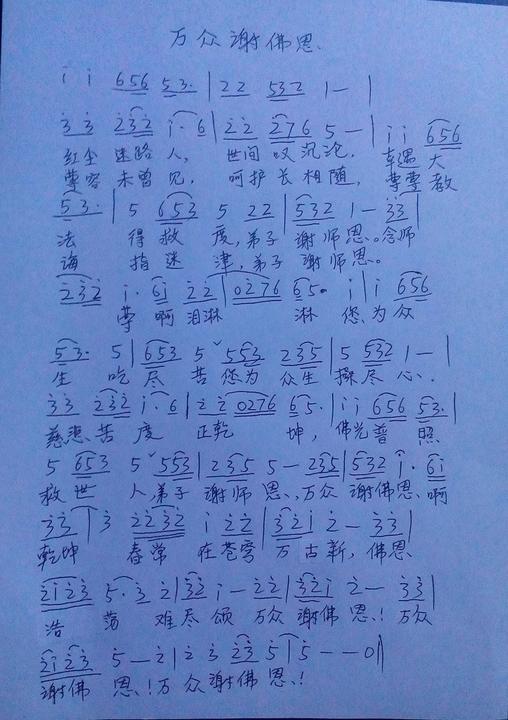 万众谢佛恩
i̇ i̇ 656 53· | 22 532 1 — |
3̇ 3̇ 2̇3̇2̇ i̇· 6 | 2̇2̇ 2̇76 5 — | i̇ i̇ 656
红尘迷路人, 世间叹沉沦, 幸遇大
尊容未曾见, 呵护长相随, 尊尊教
53· | 5 653 5 22 | 532 1 — 3̇3̇ |
法 得救度, 弟子谢师恩。念师
诲 指迷津, 弟子谢师恩。
2̇3̇2̇ i̇· 6i̇ 2̇2̇ | 02̇76 65· i̇ | i̇ 656
尊啊泪淋 淋 您为众
53· 5 | 653 5ˇ553 235 | 5 532 1 — |
生 吃尽苦您为众生操尽心.
3̇3̇ 2̇3̇2̇ i̇· 6 | 2̇ 2̇ 0276 65· | i̇ i̇ 656 53· |
慈悲苦度 正乾 坤, 佛光普照
5 653 5ˇ553 | 235 5 — 235 | 532 i̇· 6i̇
救世人, 弟子谢师恩, 万众谢佛恩, 啊
3̇3̇ | 3̇ 2̇2̇3̇2̇ i̇ 2̇2̇ | 3̇2̇i̇ 2̇ — 3̇3̇ |
乾坤 春常在苍穹万古新, 佛恩
2̇i̇2̇3̇ 5·3̇ 2̇ | 3̇2̇ i̇ — 2̇2̇ | 3̇2̇i̇ 2̇ — 3̇3̇ |
浩荡 难尽颂 万众谢佛恩! 万众
2̇i̇2̇3̇ 5 — 2̇ | 2̇ 3̇ 2̇3̇ 5 | 5 — — 0 ‖
谢佛恩! 万众谢佛恩!